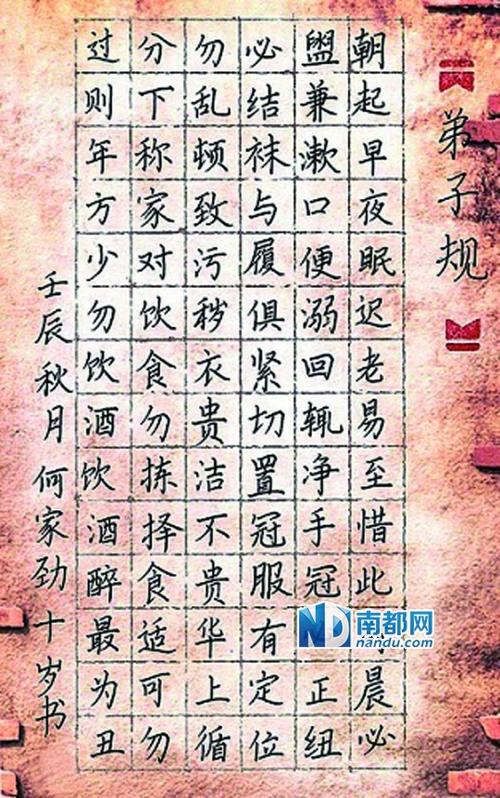 弟子规
朝起早夜眠迟老易至惜此晨必
盥兼漱口便溺回辄净手冠正纽
必结袜与履俱紧切置冠服有定位
勿乱顿致污秽衣贵洁不贵华上循
分下称家对饮食勿拣择食适可勿
过则年方少勿饮酒饮酒醉最为丑
壬辰秋月何家劲十岁书
ND南都网
nandu.com